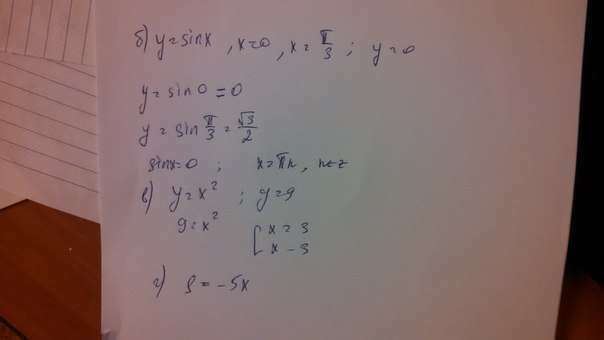 б) y = sinx , x=0 , x = π/3 ; y = 0
y = sin 0 = 0
y = sin π/3 = √3/2
sinx=0 ; x = πn, n∈z
в) y = x² ; y = 9
9 = x² [ x = 3
x - 3
г) S = -5x